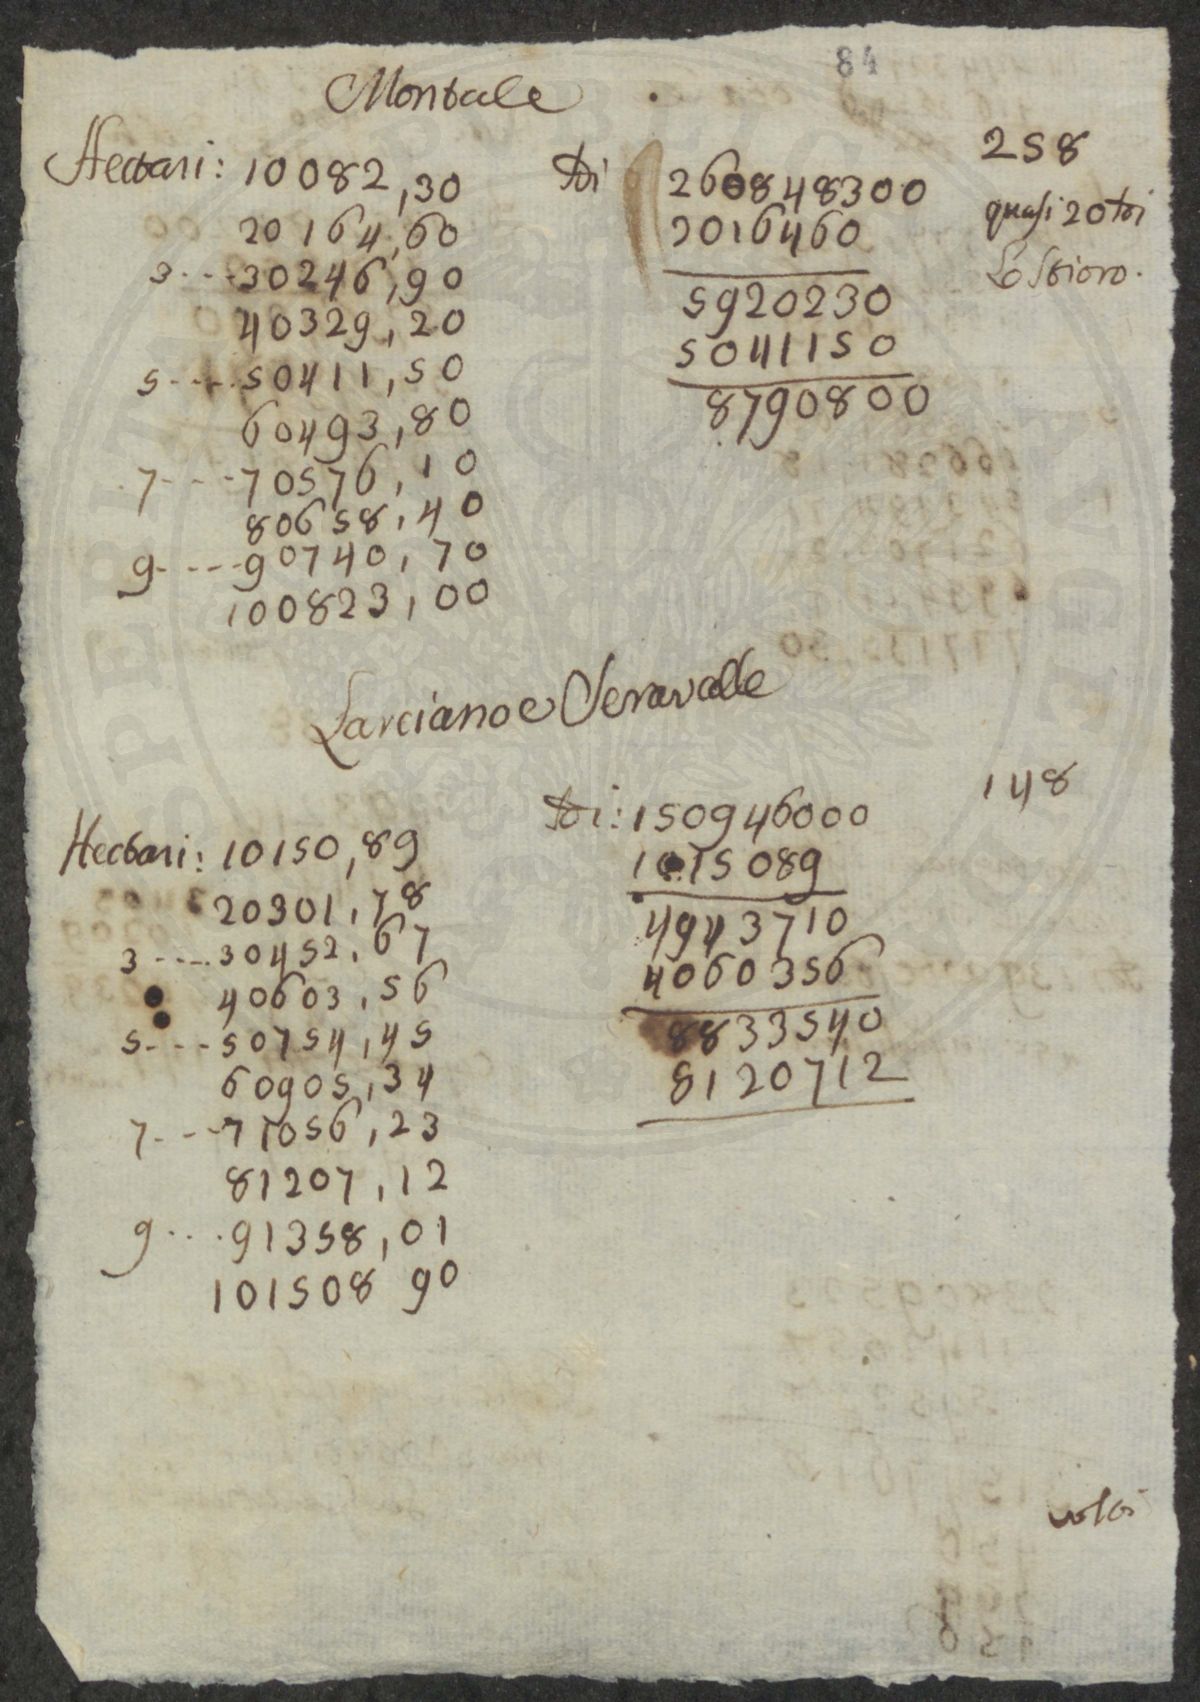 84
Montale
Hectari: 10082,30
20164,60
3...30246,90
40329,20
5....50411,50
60493,80
7....70576,10
80658,40
9....90740,70
100823,00
tti 260848300
2016460
5920230
5041150
8790800
258
quasi 20 tti
Lo Stioro.
Larciano e Seravalle
Hectari: 10150,89
20301,78
3....30452,67
40603,56
5....50754,45
60905,34
7....71056,23
81207,12
9....91358,01
101508 90
tti: 150946000
1015089
4943710
4060356
8833540
8120712
148
volti